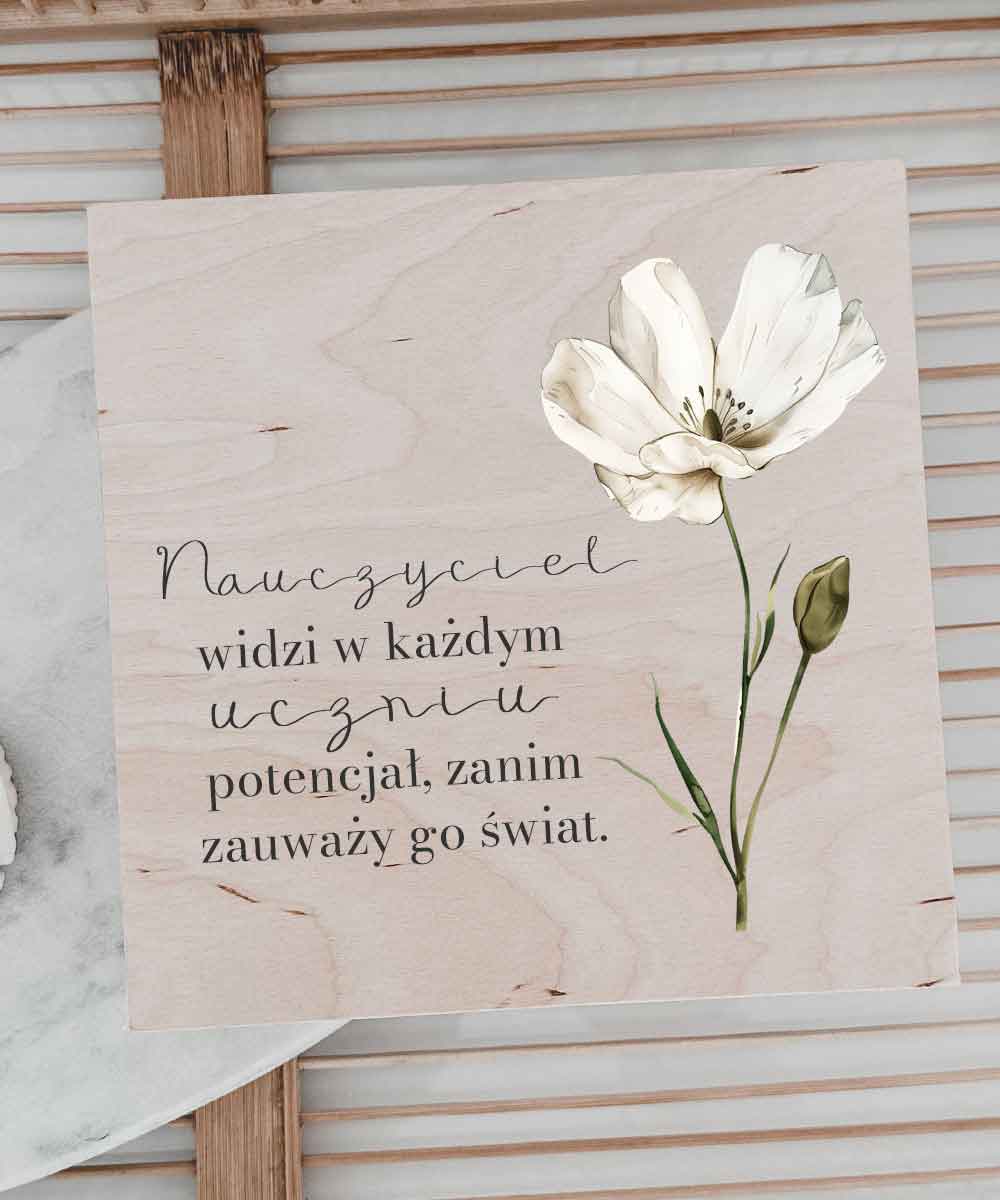 Nauczyciel
widzi w każdym
uczniu
potencjał, zanim
zauważy go świat.